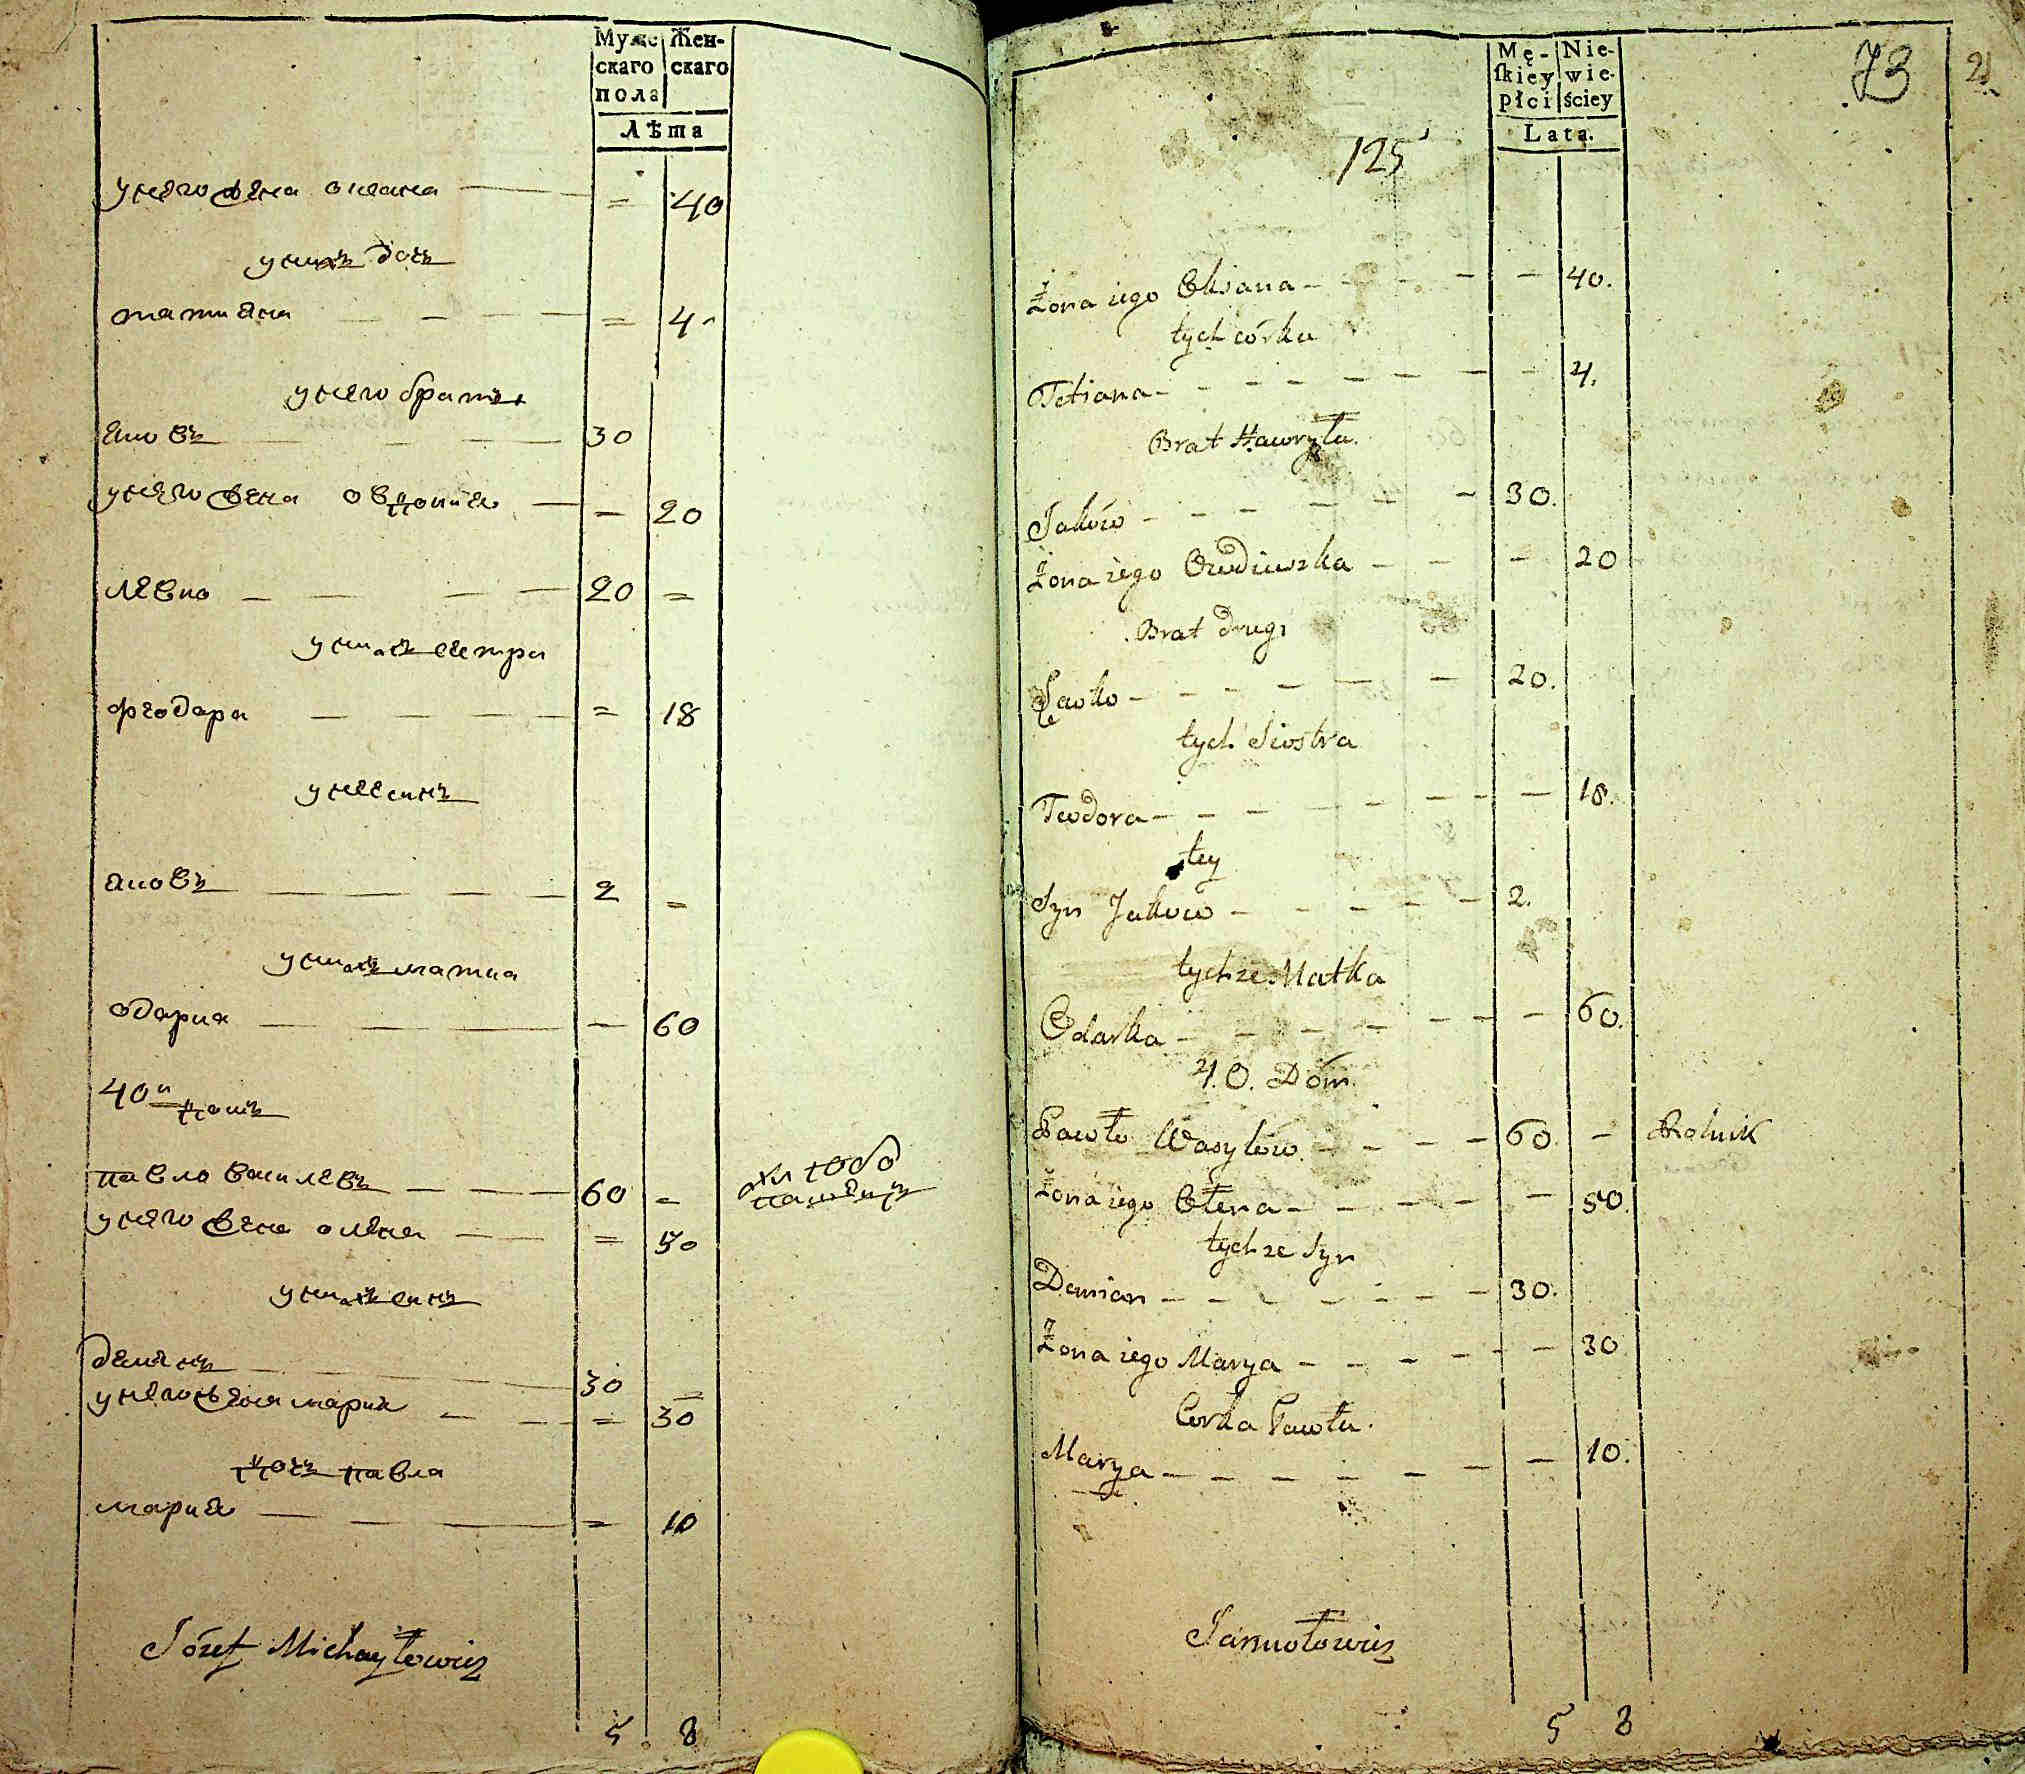 Мужс Жен-
скаго скаго
пола
Лѣта
унего жена оксана — = 40
унихъ дочъ
татиена — — — = 4
унего братъ
яковъ — — — 30
унего жена овдопиея — — 20
левко — — — — 20 =
унихъ сестра
феодара — — — — = 18
унее синъ
яковъ — — — — 2 =
унихъ матка
одария — — — — 60
40й домъ
павло василевъ — — — 60 =
хлѣбо
пашецъ
унего жена олена — — = 50
унихъ синъ
демянъ — — 30 =
унего жена мария — — — = 30
дочъ павла
мария — — — = 10
Józef Michayłowicz
5. 8
73
2
Mę- Nie-
skiey wie-
płci ściey
Lata.
125
Żona iego Oksana — — — — — 40.
tych córka
Tetiana — — — — — — — — 4.
Brat Hawryła.
Jaków — — — — — — 30.
Żona iego Owdiuszka — — — 20
Brat drugi
Lewko — — — — — — 20.
tych Siostra
Teodora — — — — — — — — 18.
tey
Syn Jakow — — — — — 2.
tychze Matka
Odarka — — — — — — — — 60.
40. Dóm.
Pawło Wasylów — — — — 60. — Rolnik
Żona iego Ołena — — — — — 50.
tychze Syn
Demian — — — — — — — 30.
Żona iego Marya — — — — — — 30
Corka Pawła.
Marya — — — — — — — — 10.
Samułowicz
5 8